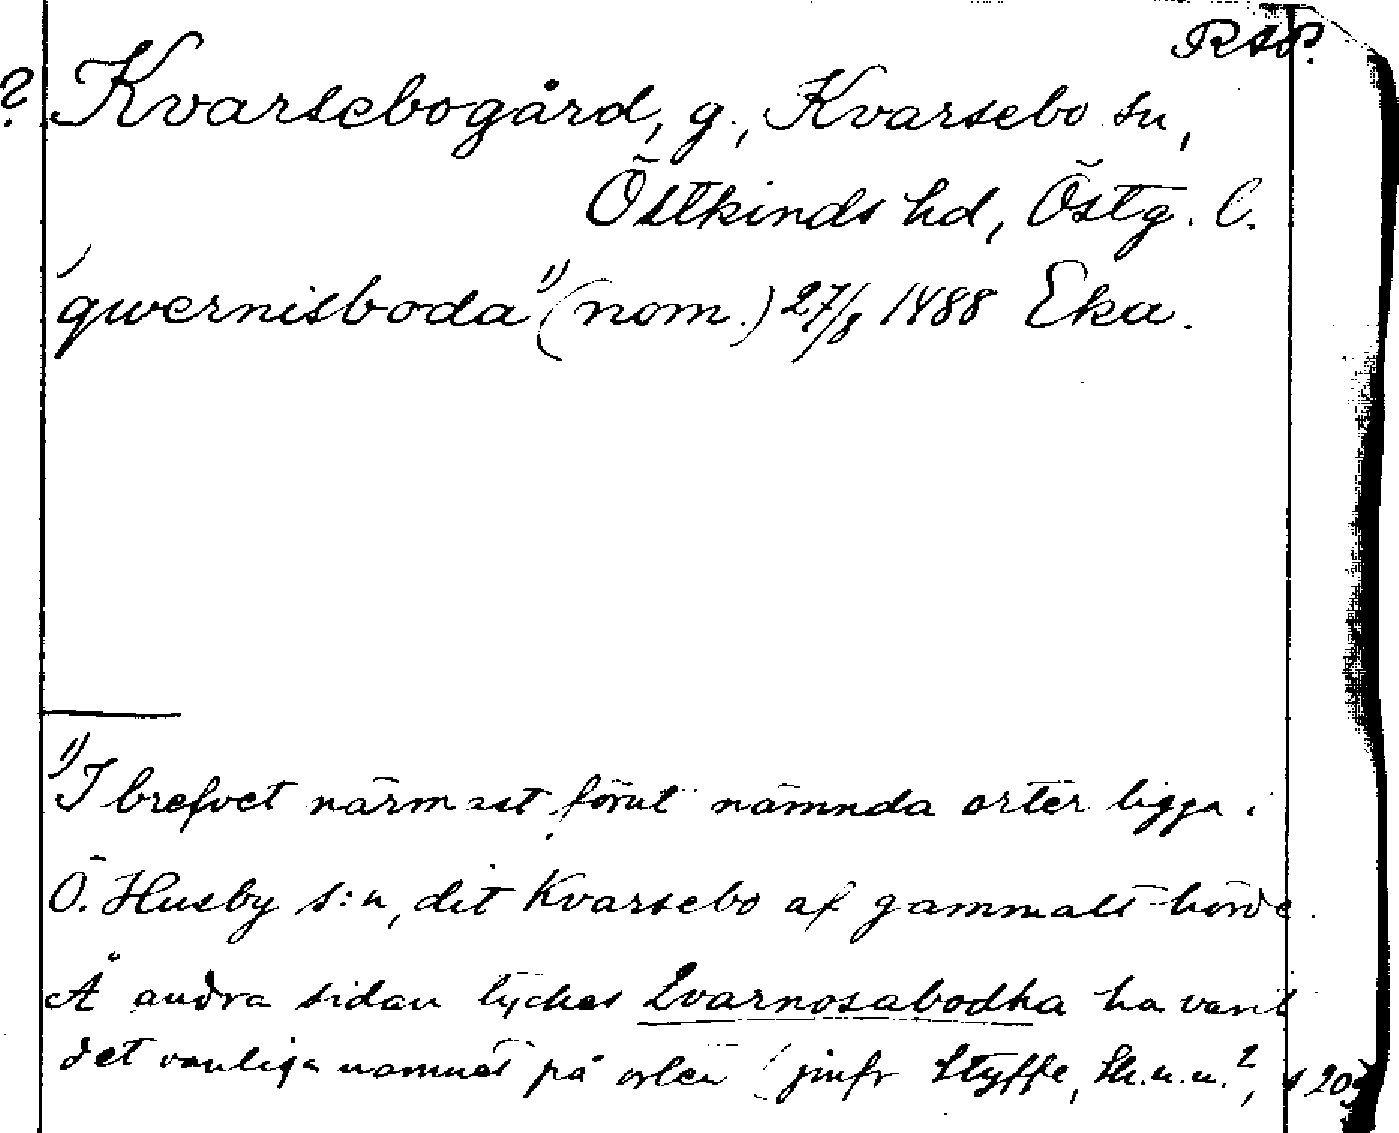 ? Kvarsebogård, g., Kvarsebo sn,
Östkinds hd, Östg. l.
qwernisboda ¹⁾ (nom.) 27/8 1488 Eka.
¹⁾ I brefvet närmast förut nämnda orter ligga i
Ö. Husby s:n, dit Kvarsebo af gammalt hörde.
Å andra sidan tyckes Qvarnosabodha ha varit
det vanliga namnet på orten (jmfr Styffe, Sk.u.u.²,